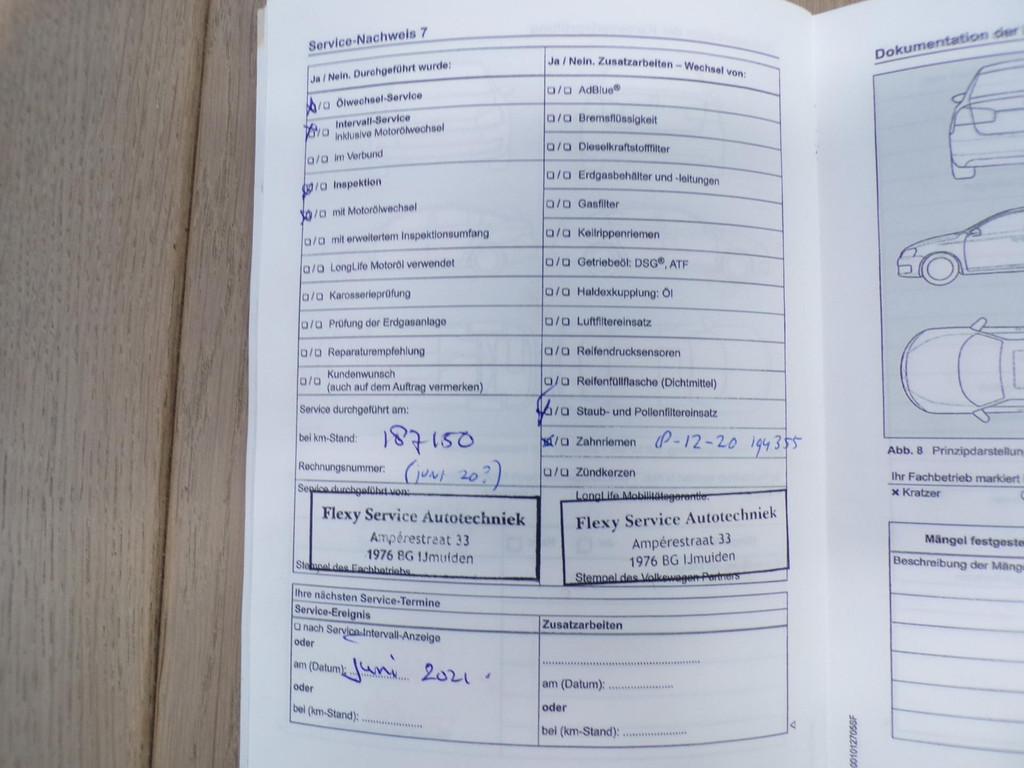 Service-Nachweis 7
Ja / Nein. Durchgeführt wurde:
☒/☐ Ölwechsel-Service
☒/☐ Intervall-Service
inklusive Motorölwechsel
☐/☐ im Verbund
☒/☐ Inspektion
☒/☐ mit Motorölwechsel
☐/☐ mit erweitertem Inspektionsumfang
☐/☐ LongLife Motoröl verwendet
☐/☐ Karosserieprüfung
☐/☐ Prüfung der Erdgasanlage
☐/☐ Reparaturempfehlung
☐/☐ Kundenwunsch
(auch auf dem Auftrag vermerken)
Service durchgeführt am:
bei km-Stand: 187150
Rechnungsnummer: (juni 20?)
Service durchgeführt von:
Flexy Service Autotechniek
Ampérestraat 33
1976 BG IJmuiden
Stempel des Fachbetriebs
Ja / Nein. Zusatzarbeiten – Wechsel von:
☐/☐ AdBlue®
☐/☐ Bremsflüssigkeit
☐/☐ Dieselkraftstofffilter
☐/☐ Erdgasbehälter und -leitungen
☐/☐ Gasfilter
☐/☐ Keilrippenriemen
☐/☐ Getriebeöl: DSG®, ATF
☐/☐ Haldexkupplung: Öl
☐/☐ Luftfiltereinsatz
☐/☐ Reifendrucksensoren
☐/☐ Reifenfüllflasche (Dichtmittel)
☒/☐ Staub- und Pollenfiltereinsatz
☒/☐ Zahnriemen -12-20 194355
☐/☐ Zündkerzen
LongLife Mobilitätsgarantie:
Flexy Service Autotechniek
Ampérestraat 33
1976 BG IJmuiden
Stempel des Volkswagen Partners
Ihre nächsten Service-Termine
Service-Ereignis
☐ nach Service-Intervall-Anzeige
oder
am (Datum): Juni 2021.
oder
bei (km-Stand): ..................
Zusatzarbeiten
..............................................
am (Datum): ...................
oder
bei (km-Stand): ...................
Dokumentation der
Abb. 8 Prinzipdarstellun
Ihr Fachbetrieb markiert
× Kratzer
Mängel festgeste
Beschreibung der Mäng